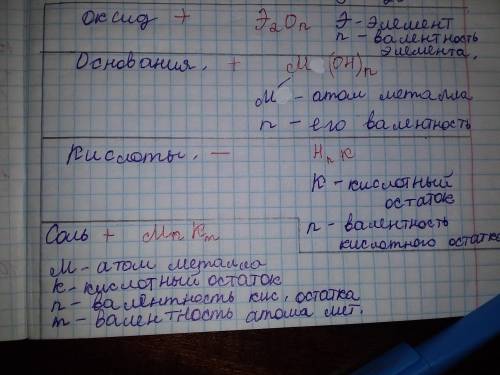 оксид + Э₂Оₙ Э - элемент
n - валентность
элемента.
Основания. + М (ОН)ₙ
М - атом металла
n - его валентность
Кислоты. — Нₙ К
К - кислотный
остаток
n - валентность
кислотного остатка
Соль + Мₙ Кₘ
М - атом металла
К - кислотный остаток
n - валентность кис. остатка
m - валентность атома мет.